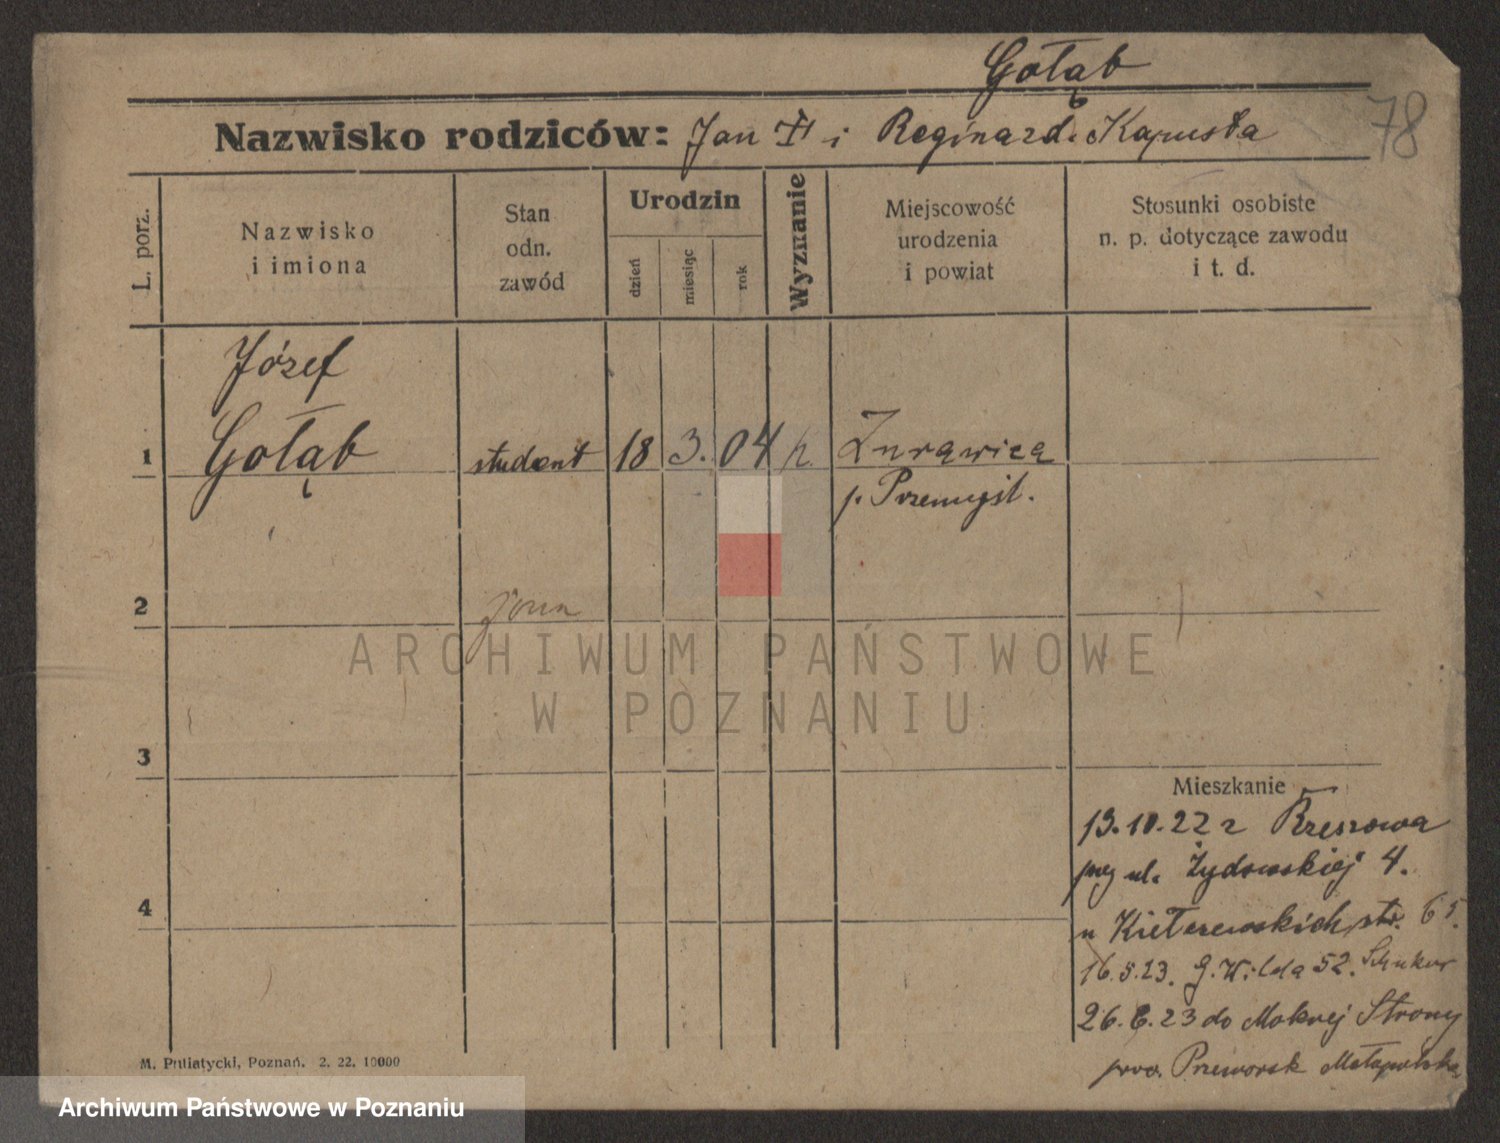 Gołąb
78
Nazwisko rodziców: Jan i Regina zd. Kapusta
L. porz.
Nazwisko i imiona
Stan odn. zawód
Urodzin
dzień
miesiąc
rok
Wyznanie
Miejscowość urodzenia i powiat
Stosunki osobiste n. p. dotyczące zawodu i t. d.
Józef
1 Gołąb student 18 3. 04 k. Żurawica
p. Przemyśl.
2
3
4
Mieszkanie
13.10.22 z Rzeszowa
przy ul. Żydowskiej 4.
u 65.
16.5.23. G. Wilda 52.
26.6.23 do Mokrej Strony
pow. Przeworsk Małopolska
M. Putiatycki, Poznań. 2. 22. 10000
ARCHIWUM PAŃSTWOWE
W POZNANIU
Archiwum Państwowe w Poznaniu